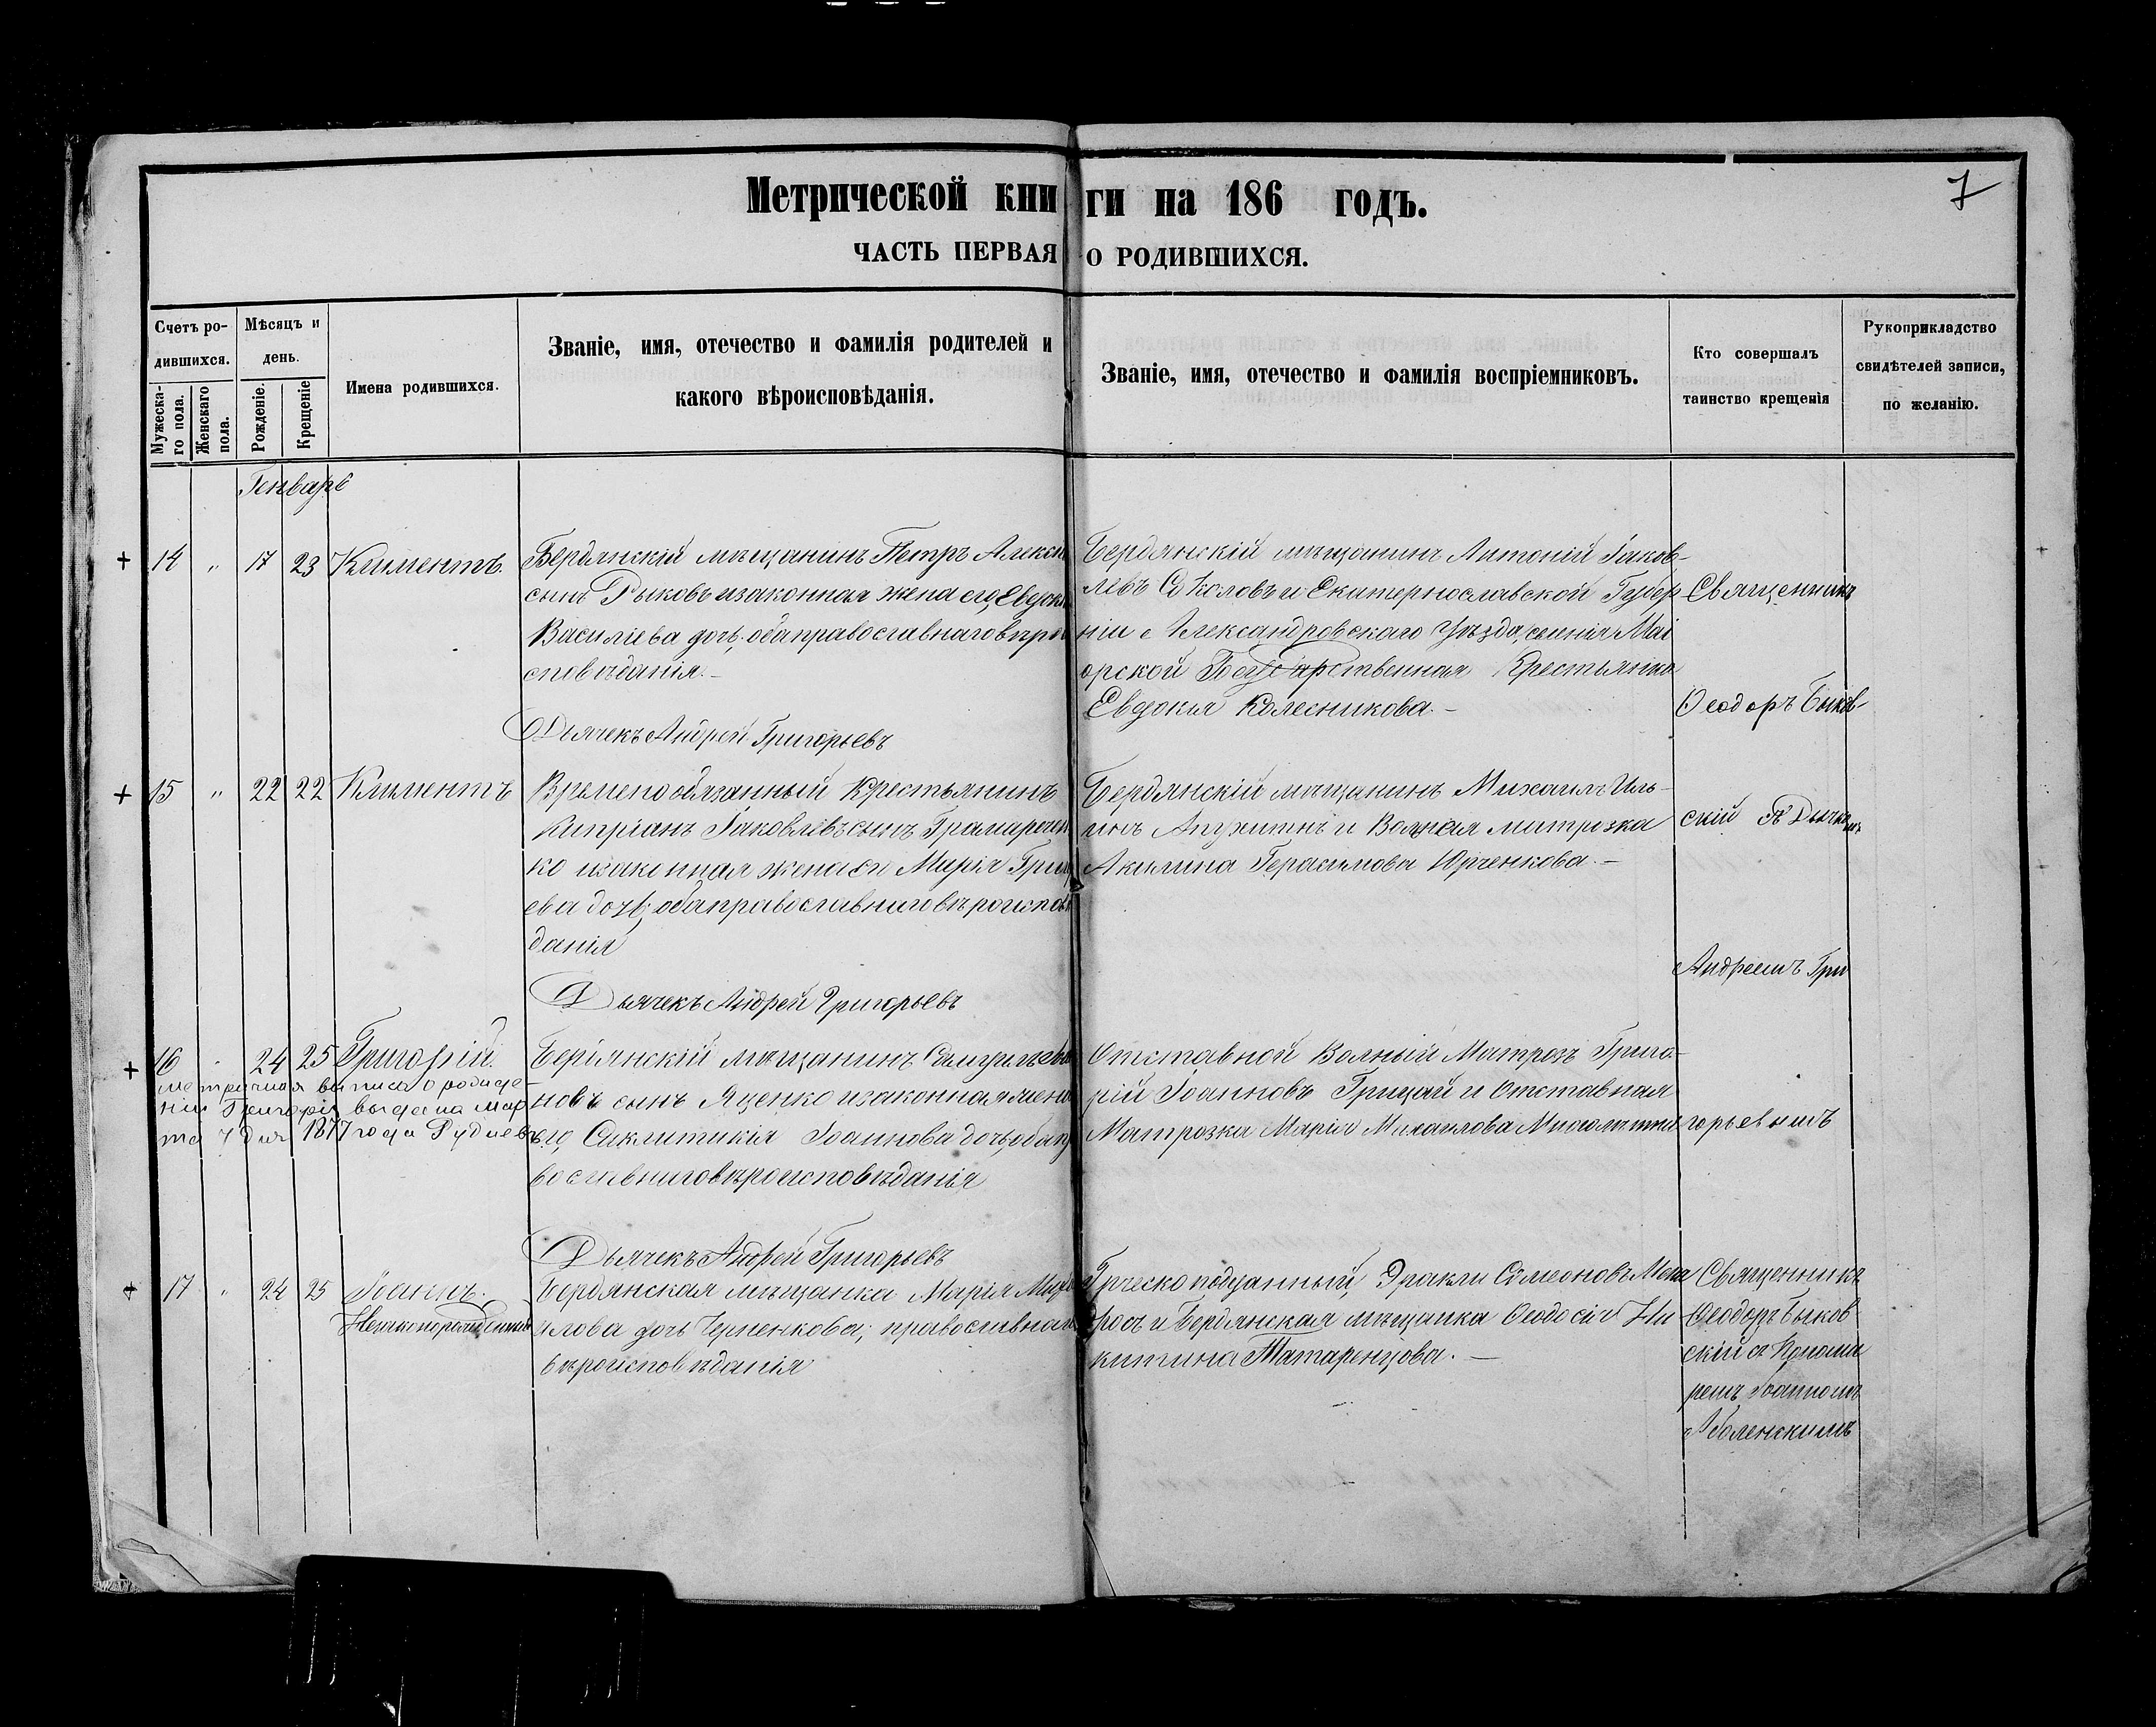 Метрической книги на 186 годъ.
7
ЧАСТЬ ПЕРВАЯ О РОДИВШИХСЯ.
Счетъ ро-
дившихся.
Мужеска-
го пола.
Женскаго
пола.
Мѣсяцъ и
день.
Рожденіе.
Крещеніе
Имена родившихся.
Званіе, имя, отечество и фамилія родителей и
какого вѣроисповѣданія.
Званіе, имя, отечество и фамилія воспріемниковъ.
Кто совершалъ
таинство крещенія
Рукоприкладство
свидѣтелей записи,
по желанію.
Генварь
+ 14 " 17 23 Климентъ.
Бердянскій мѣщанинъ Петръ Алексѣ
сынъ Рыковъ и законная жена его, Евдокі
Василіева дочь, оба православнаго вѣрои
сповѣданія.–
Дьячекъ Андрей Григорьевъ
Бердянскій мѣщанинъ Антоній Іаков-
левъ Соколовъ и Екатеринославской Губер
ніи Александровскаго Уѣзда, селенія Маі
орской Государственная Крестьянка
Евдокія Колесникова.–
Священникъ
Ѳеодоръ Быков-
+ 15 " 22 22 Климентъ
Временообязанный Крестьянинъ
Кипріанъ Іаковлевъ сынъ
ко и законная жена его Марія Григор
ева дочь, оба православнаго вѣроисповѣ
данія
Дьячекъ Андрей Григорьевъ
Бердянскій мѣщанинъ Михаилъ Иль-
инъ и Вольная матрозка
Акилина Герасимова Юрченкова.–
скій съ Дьячкомъ
Андреемъ Гри
+ 16 " 24 25 Григорій.
метричная выпись о рожде-
ніи Григорія выдана мар
та 7 дня 1877 года Рудневъ
Бердянскій мѣщанинъ
новъ сынъ Яценко и законная жена
его, Синклитикія Іоаннова дочь, оба пр
вославнаго вѣроисповѣданія
Дьячекъ Андрей Григорьевъ
Отставной Вольный Матрозъ Григо-
рій Іоанновъ Грицай и Отставная
Матрозка Марія Михаилова
горьевымъ
+ 17 " 24 25 Іоаннъ.
Незаконорожденный
Бердянская мѣщанка Марія Миха
илова дочь Черненкова, православнаго
вѣроисповѣданія
Греческо подданный, Иракли Сѵмеоновъ
росъ и Бердянская мѣщанка Ѳеодосія Ни
китина Татаренцова.–
Священникъ
Ѳеодоръ Быков
скій съ Понома
ремъ Іоанномъ
Оболенскимъ